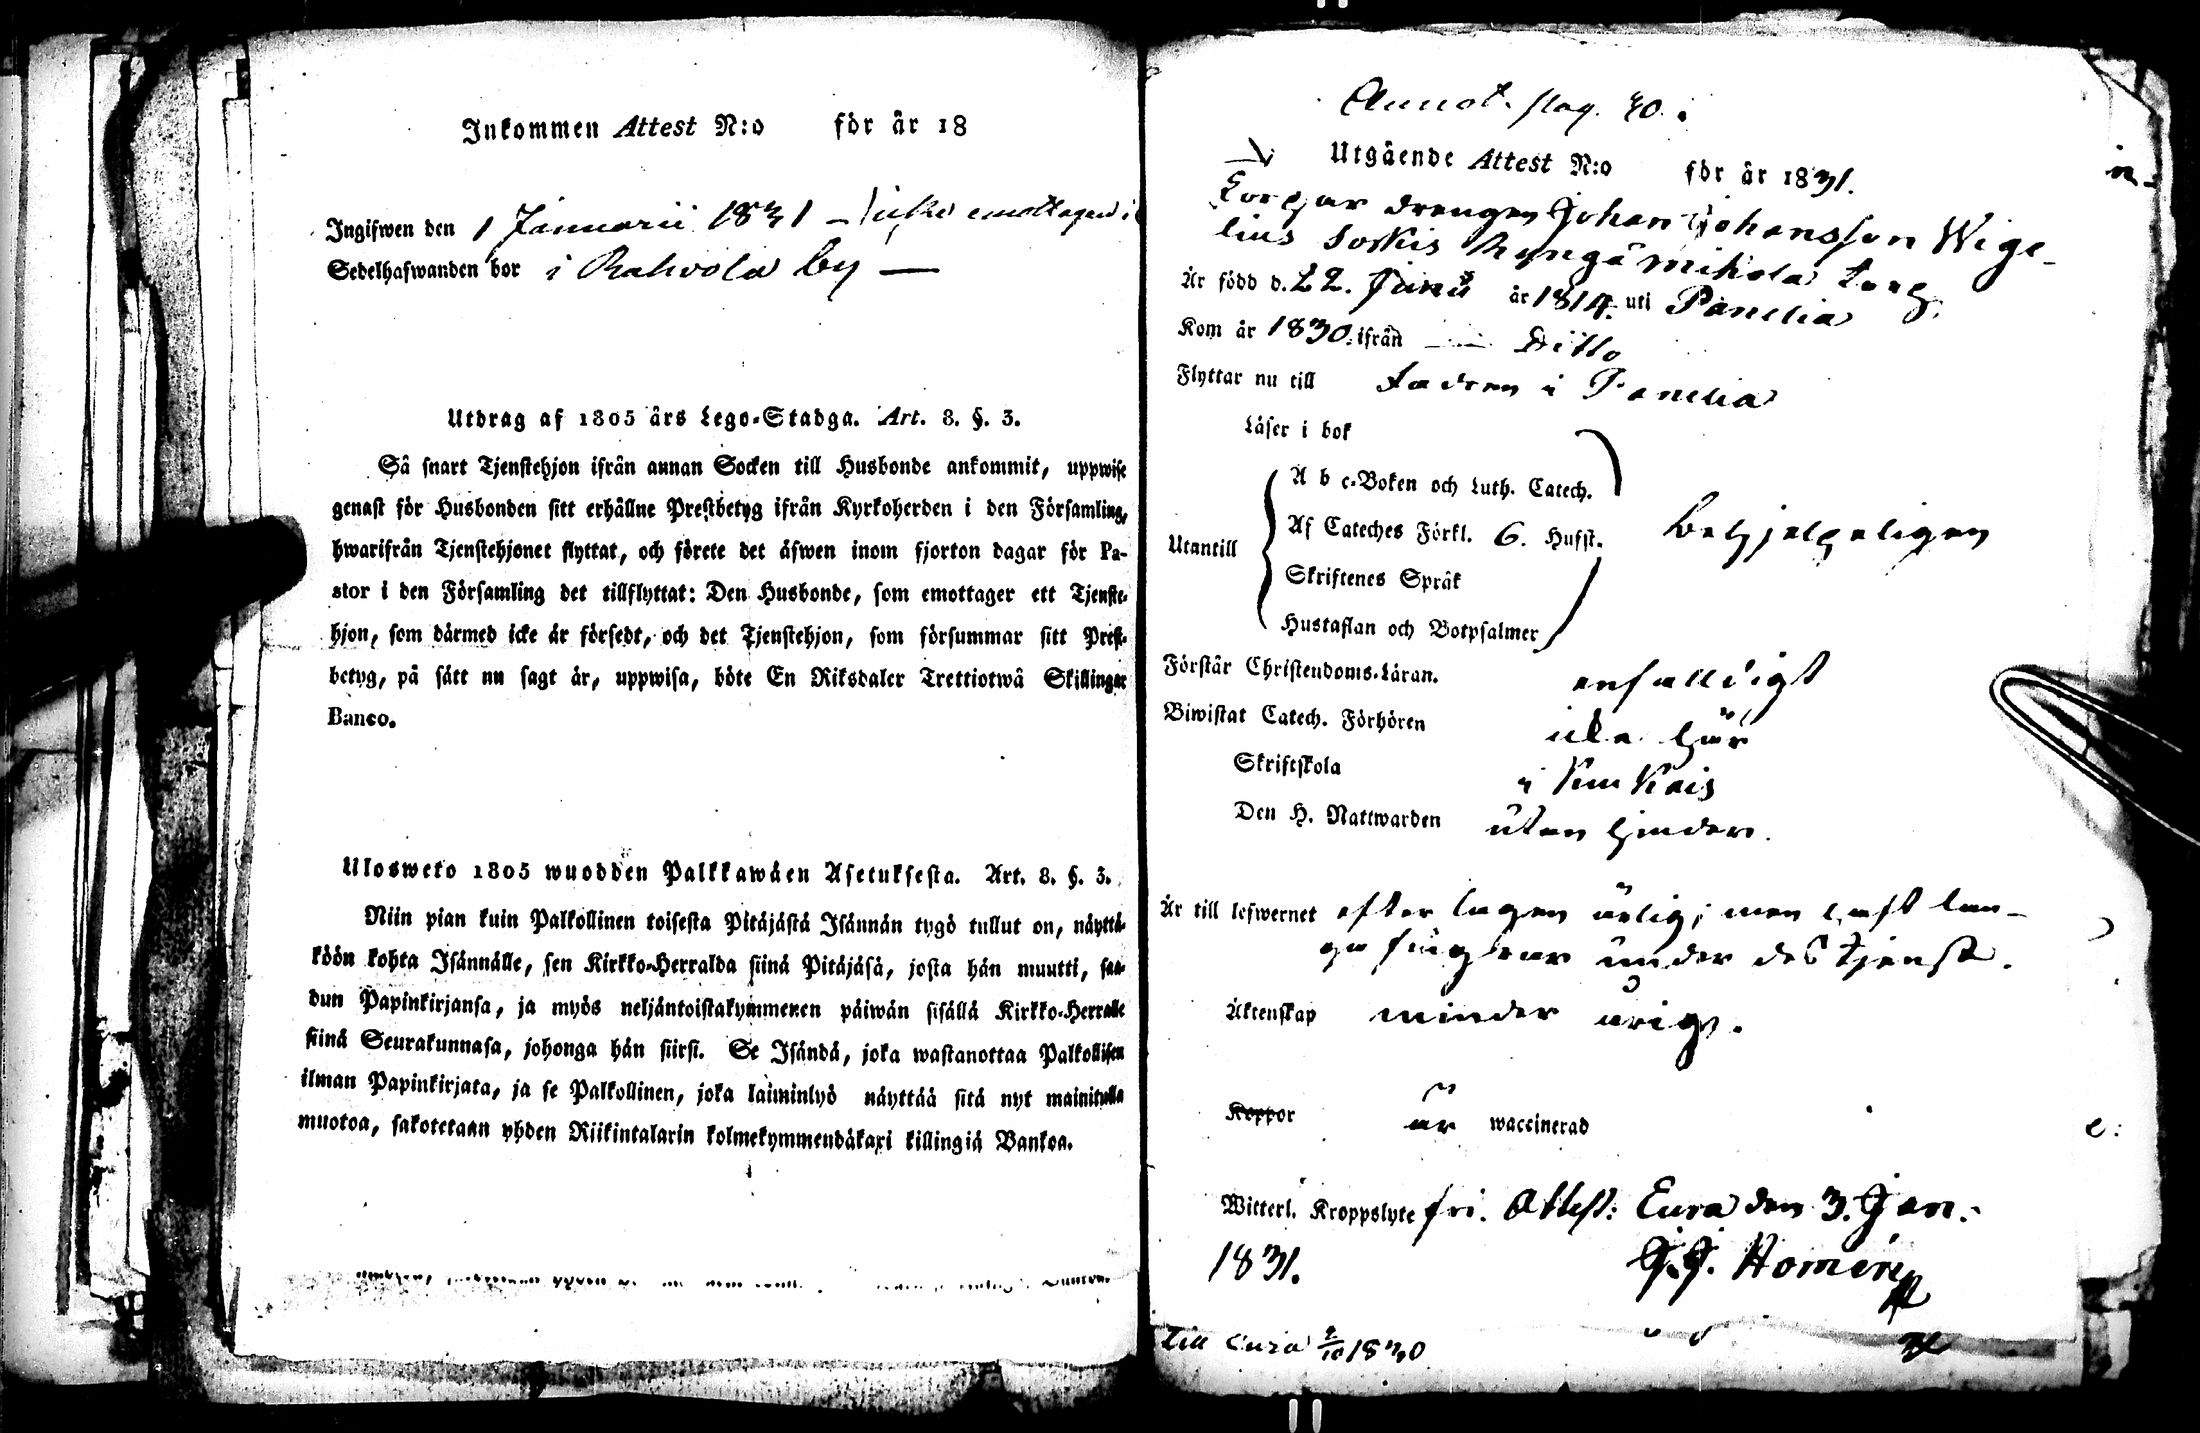 Inkommen Attest N:o för år 18
Ingifwen den 1 Januarii 1831 – icke emottagen i
Sedelhafwanden bor i Rahvola by —
Utdrag af 1805 års Lego-Stadga. Art. 8. §. 3.
Så snart Tjenstehjon ifrån annan Socken till Husbonde ankommit, uppwise
genast för Husbonden sitt erhållne Prestbetyg ifrån Kyrkoherden i den Församling,
hwarifrån Tjenstehjonet flyttat, och förete det äfwen inom fjorton dagar för Pa-
stor i den Församling det tillflyttat: Den Husbonde, som emottager ett Tjenste-
hjon, som därmed icke är försedt, och det Tjenstehjon, som försummar sitt Prest-
betyg, på sätt nu sagt är, uppwisa, böte En Riksdaler Trettiotwå Skillingar
Banco.
Ulosweto 1805 wuodden Palkkawäen Asetuksesta. Art. 8. §. 3.
Niin pian kuin Palkollinen toisesta Pitäjästä Isännän tygö tullut on, näyttä-
köön kohta Isännälle, sen Kirkko-Herralda siinä Pitäjäsä, josta hän muutti, saa-
dun Papinkirjansa, ja myös neljäntoistakymmenen päiwän sisällä Kirkko-Herralle
siinä Seurakunnasa, johonga hän siirsi. Se Isändä, joka wastanottaa Palkollisen
ilman Papinkirjata, ja se Palkollinen, joka laiminlyö näyttää sitä nyt mainitulla
muotoa, sakotetaan yhden Riikintalarin kolmekymmendäkaxi killingiä Bankoa.
Annot. pag. 40.
Utgående Attest N:o för år 1831.
drengen Johan Johansson Wige-
lius Torp.
Är född d. 22. Junii år 1814. uti Panelia
Kom år 1830. ifrån Ditto
Flyttar nu till fadren i Panelia
Läser i bok
A b c-Boken och Luth. Catech.
Utantill Af Cateches Förkl. 6. Hufst. behjelpeligen
Skriftenes Språk
Hustaflan och Botpsalmer
Förstår Christendoms-Läran. enfalldigt
Biwistat Catech. Förhören icke här
Skriftskola i Kiukais
Den H. Nattwarden utan hinder.
Är till lefwernet efter lagen ärlig; men haft lån-
ga fingrar under des tjenst.
Äktenskap minder årig.
Koppor är waccinerad
Witterl. Kroppslyte fri. Attest: Eura den 3. Jan.
1831. J. J. Homén
till Eura 2/10 1830